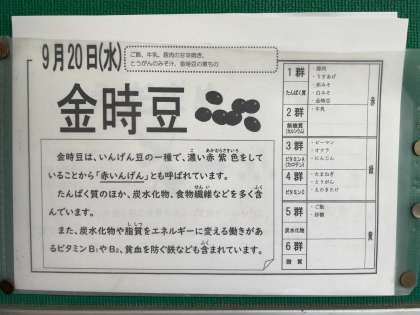 9月20日(水)
ご飯、牛乳、豚肉の甘辛焼き、
とうがんのみそ汁、金時豆の煮もの
金時豆
金時豆は、いんげん豆の一種で、濃い赤紫色をして
いることから「赤いんげん」とも呼ばれています。
たんぱく質のほか、炭水化物、食物繊維などを多く含
んでいます。
また、炭水化物や脂質をエネルギーに変える働きがあ
るビタミンB₁やB₂、貧血を防ぐ鉄なども含まれています。
1群
たんぱく質
・豚肉
・うすあげ
・赤みそ
・白みそ
・金時豆
2群
無機質
(カルシウム)
・牛乳
赤
3群
ビタミンA
(カロテン)
・ピーマン
・オクラ
・にんじん
4群
ビタミンC
・たまねぎ
・とうがん
・えのきたけ
緑
5群
炭水化物
・ご飯
・砂糖
6群
脂質
黄